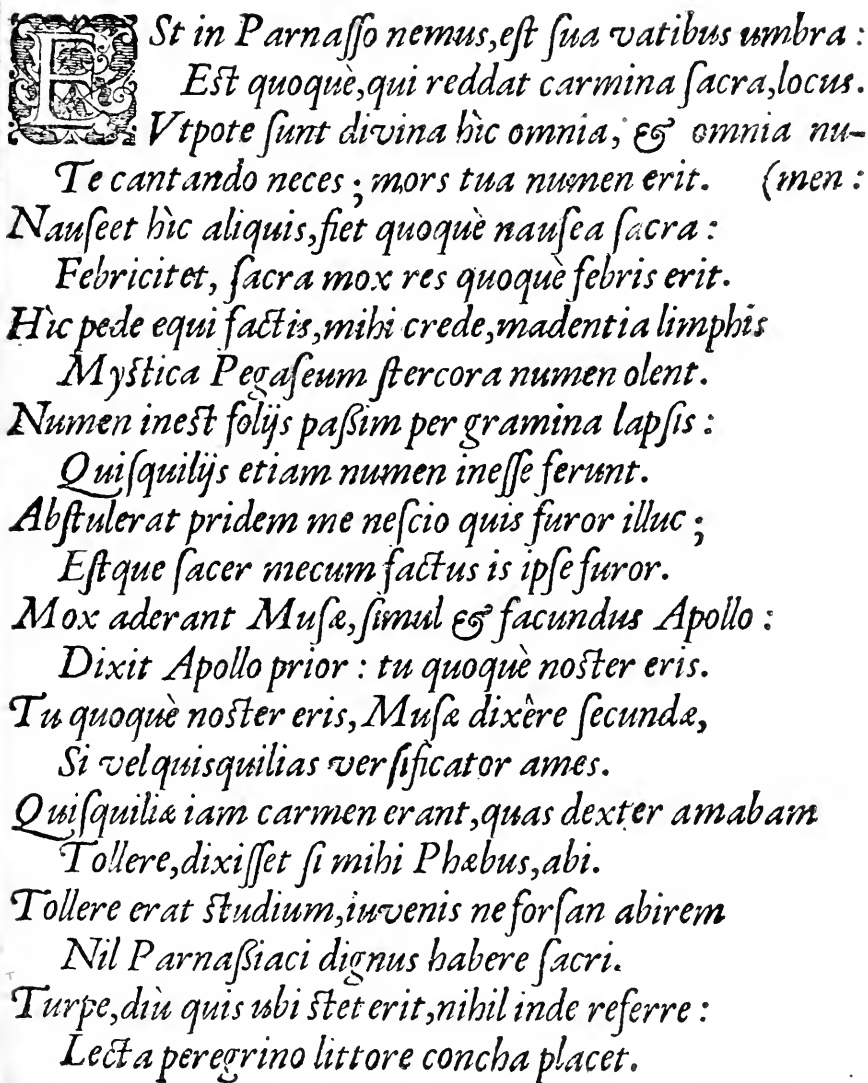 ESt in Parnaſſo nemus,eſt ſua vatibus umbra :
Eſt quoquè,qui reddat carmina ſacra,locus.
Vtpote ſunt divina hìc omnia, & omnia nu-
Te cantando neces ; mors tua numen erit. (men :
Nauſeet hìc aliquis,fiet quoquè nauſea ſacra :
Febricitet, ſacra mox res quoquè febris erit.
Hìc pede equi factis,mihi crede,madentia limphis
Myſtica Pegaſeum ſtercora numen olent.
Numen ineſt folijs paſſim per gramina lapſis :
Quiſquilijs etiam numen ineſſe ferunt.
Abſtulerat pridem me neſcio quis furor illuc ;
Eſtque ſacer mecum factus is ipſe furor.
Mox aderant Muſæ,ſimul & facundus Apollo :
Dixit Apollo prior : tu quoquè noſter eris.
Tu quoquè noſter eris,Muſæ dixêre ſecundæ,
Si vel quisquilias verſificator ames.
Quiſquiliæ iam carmen erant,quas dexter amabam
Tollere,dixiſſet ſi mihi Phæbus,abi.
Tollere erat ſtudium,iuvenis ne forſan abirem
Nil Parnaſſiaci dignus habere ſacri.
Turpe,diù quis ubi ſteterit,nihil inde referre :
Lecta peregrino littore concha placet.